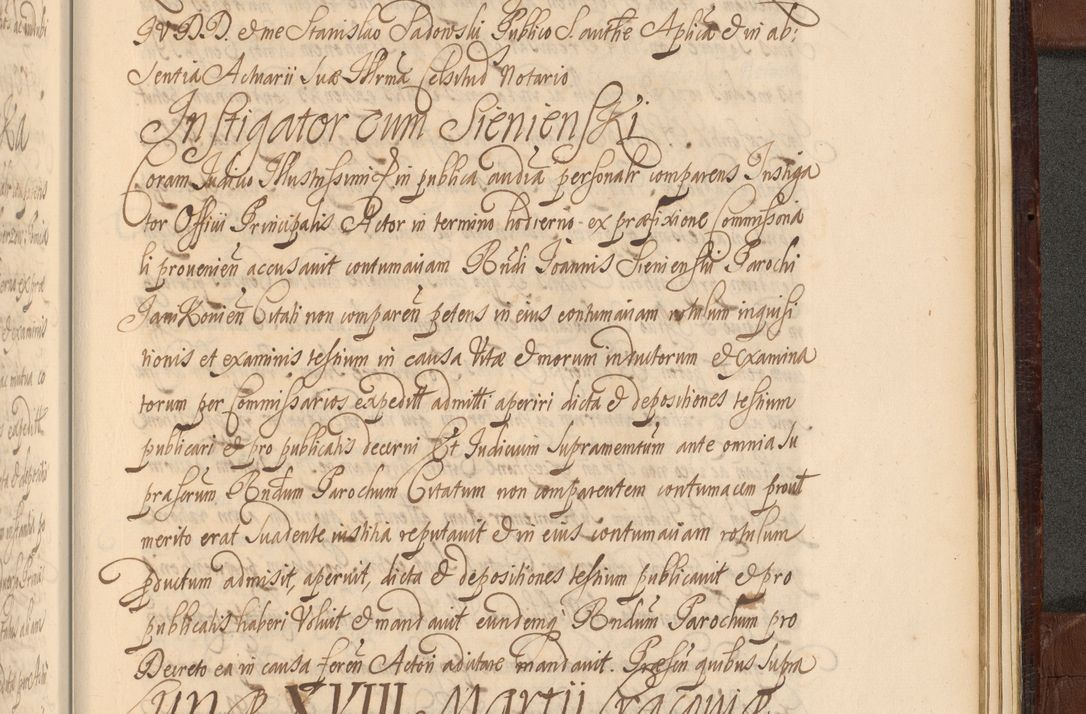 JV D.D. et me Stanislao Sadowski Publico S. authē Aplica et in ab:
sentia Actuarii Suæ Illrmæ Celsitud Notario
Instigator cum Sienienski
Coram Judicio Illustrissimi & in publica audīa personalr comparens Instiga
tor Officii Principalis Actor in termino hodierno ex præfixione Commissoria
li provenieñ accusavit contumaciam Rñdi Joannis Sienienski Parochi
Janikovieñ Citati non compareñ petens in eius contumaciam rotulum inquisi
tionis et examinis testium in causa Vitæ et morum inductorum et Examina
torum per Commissarios expeditt admitti aperiri dicta et depositiones testium
publicari et pro publicatis decerni Et Judicium supramemtum ante omnia su
praferum Rndum Parochum Citatum non comparentem contumacem prout
merito erat suadente iustitia reputavit et in eius contumaciam rotulum
productum admisit, aperuit, dicta et depositiones testium publicavit et pro
publicatis haberi voluit et mandavit eundemq Rndum Parochum pro
Decreto ea in causa fereñ Actori adcitare mandavit. Præsen quibus supra
XVIII Martii Cracoviæ